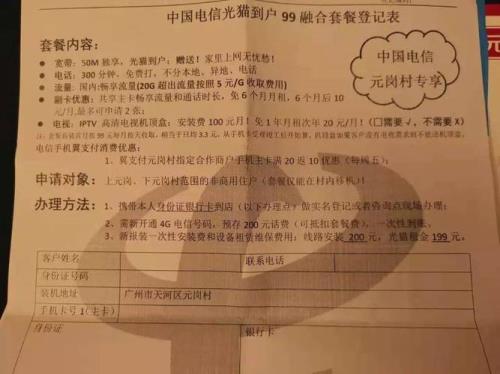 中国电信光猫到户 99 融合套餐登记表
套餐内容：
宽带：50M 独享，光猫到户；赠送！家里上网无忧愁！
电话：300 分钟，免费打，不分本地、异地、电话
流量：国内:畅享流量(20G 超出流量按照 5 元/G 收取费用)
副卡优惠：共享主卡畅享流量和通话时长，免 6 个月月租，6 个月后 10
元/月,最多可申请 2 张；
电视：IPTV 高清电视机顶盒：安装费 100 元/月！免 1 年月租次年 20 元/月！(□需要 √，不需要 X)
中国电信
元岗村专享
电信手机翼支付消费优惠：
1、翼支付元岗村指定合作商户手机主卡满 20 返 10 优惠（每周五）；
申请对象：上元岗、下元岗村范围的非商用住户（套餐仅能在村内移机）！
办理方法：1、携带本人身份证银行卡到店（以下办理点）做实名登记或者咨询点现场办理；
2、需新开通 4G 电信号码，预存 200 元话费（可抵扣套餐费），一次性到账。
3、新报装一次性安装费和设备租赁维保费用：线路安装 200 元，光猫租金 199 元。
客户姓名
联系电话
身份证号码
装机地址
广州市天河区元岗村
手机卡号 1(主卡)
身份证
银行卡